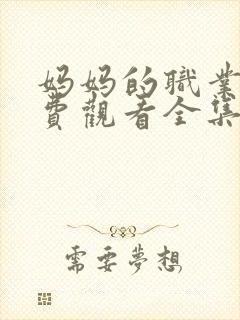 妈妈的職業
費觀看全集
需要夢想